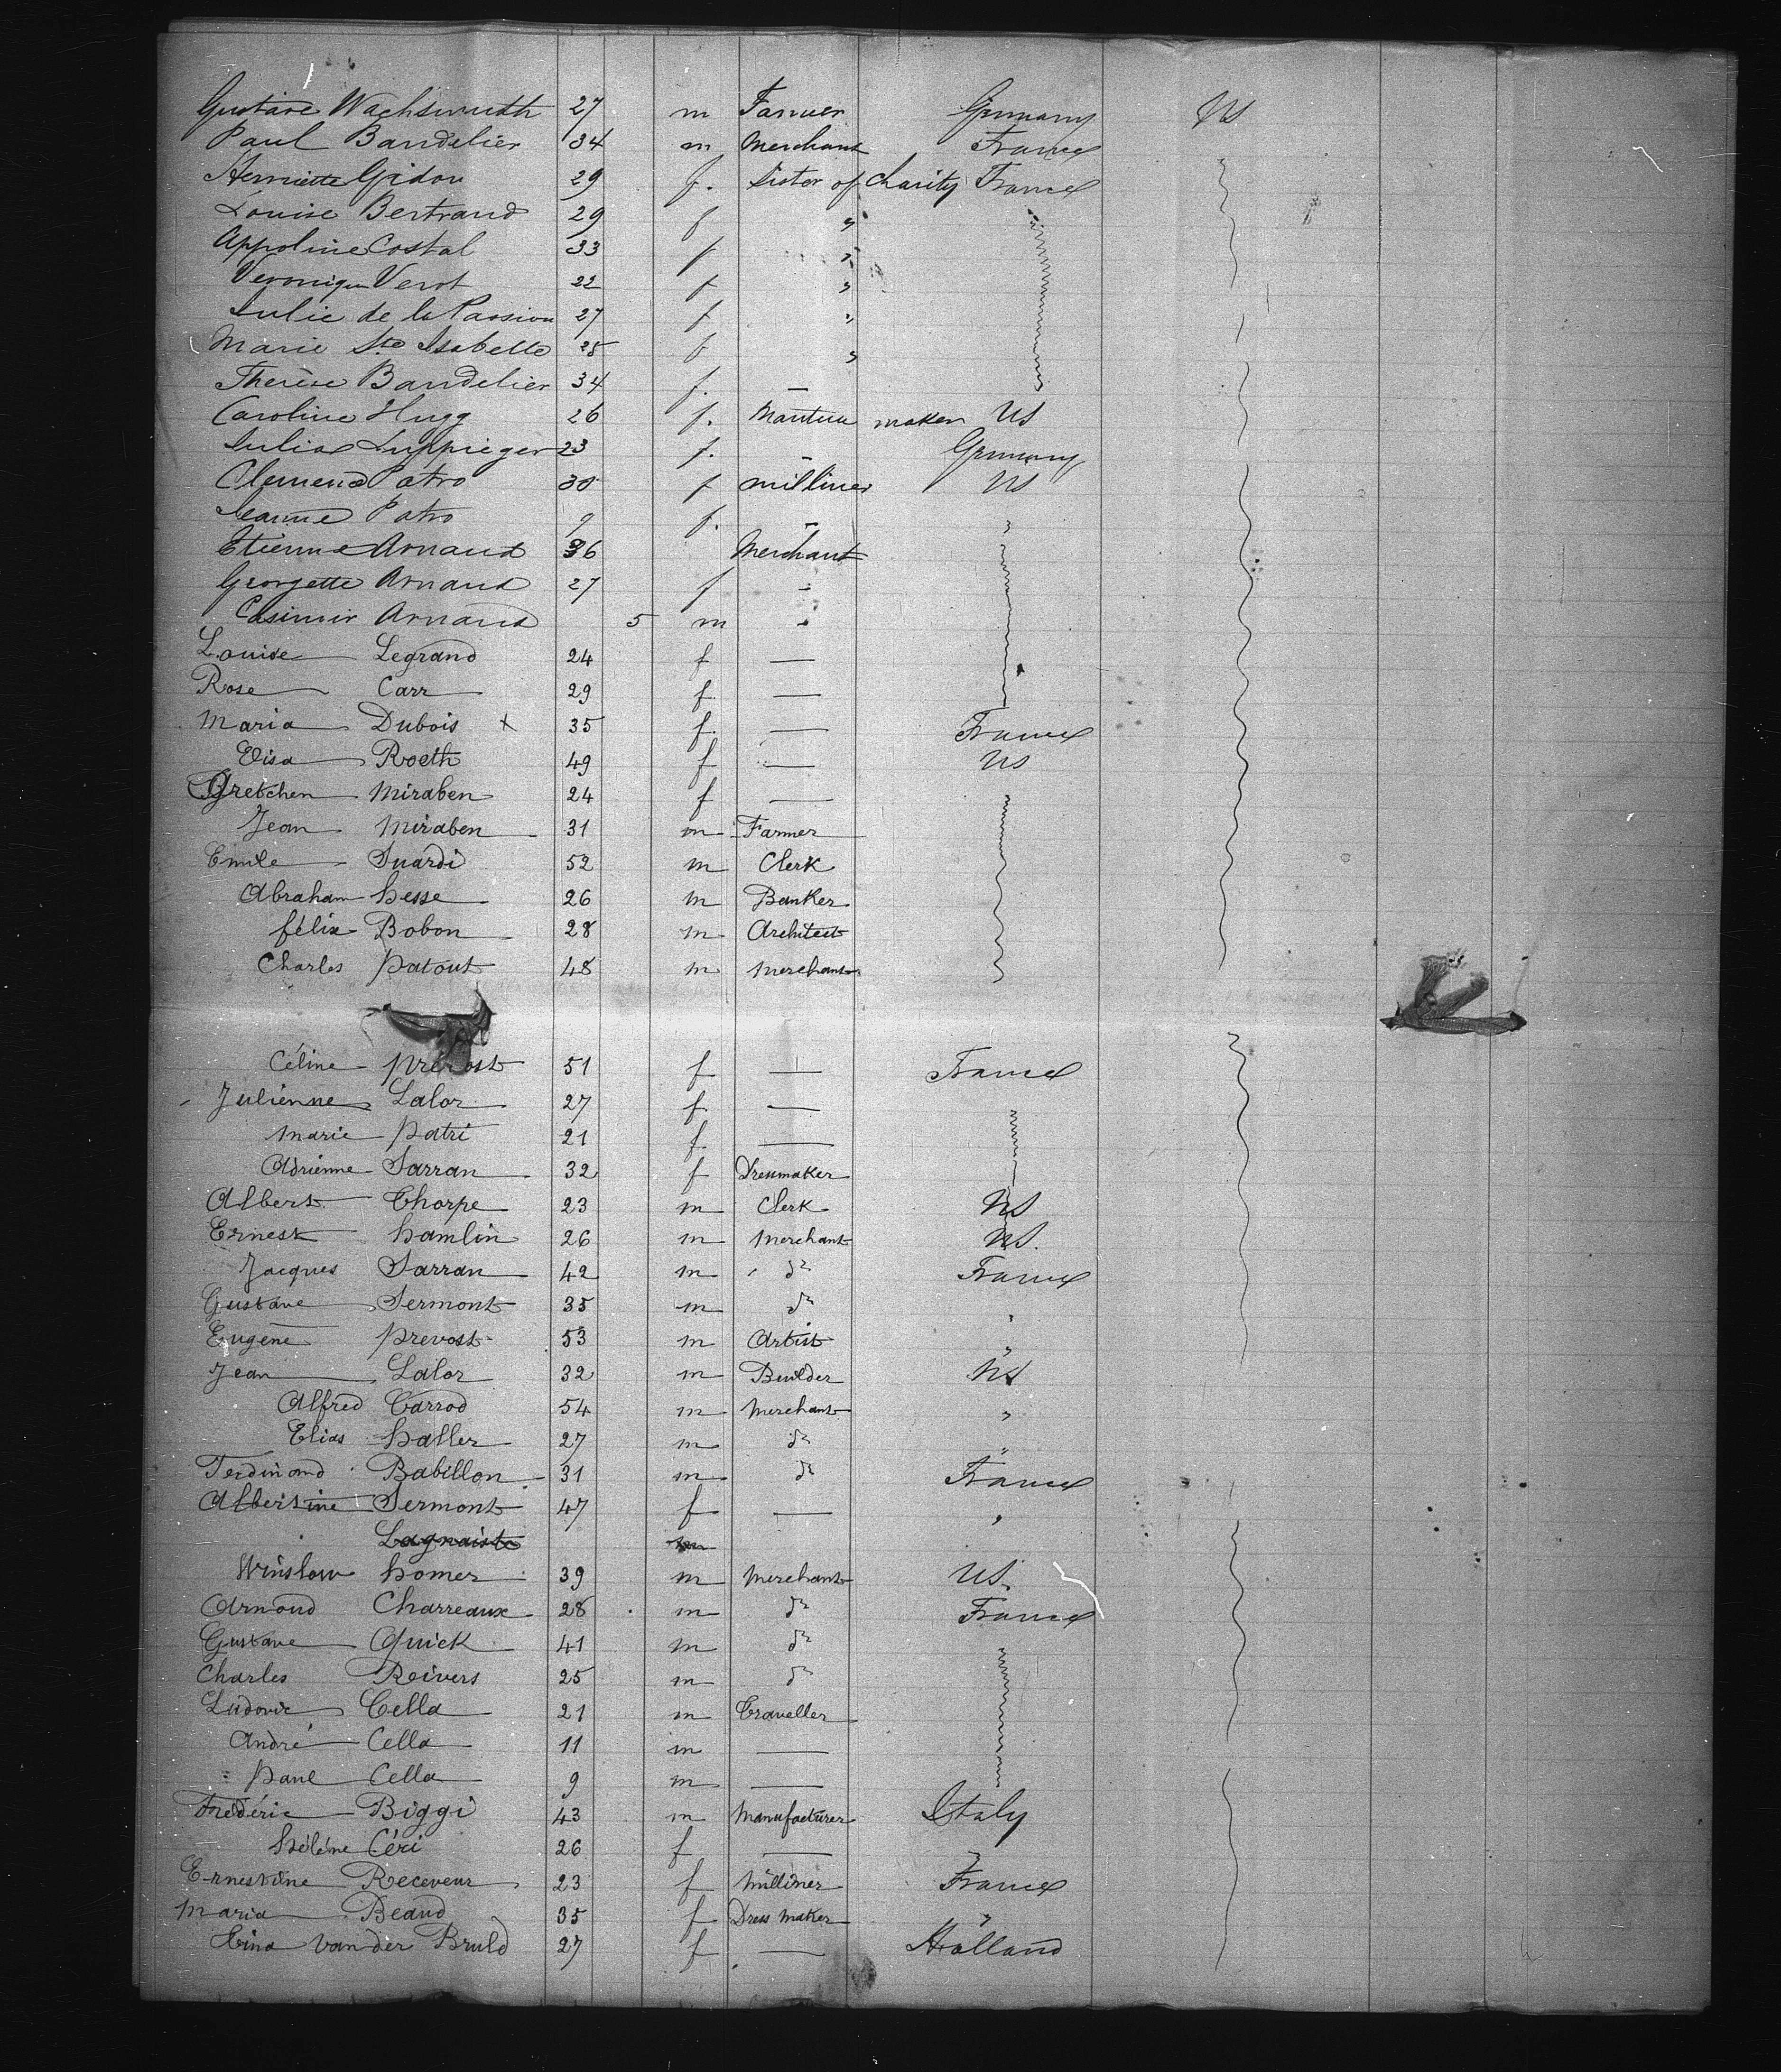 Gustave Wachsmuth 27 m Farmer Germany US
Paul Bandelier 34 m Merchant France
Henriette Gidon 29 f. Sister of Charity France
Louise Bertrand 29 f "
Appoline Costal 33 f "
Veronique Verot 22 f "
Julie de la Passion 27 f "
Marie Ste Isabelle 28 f "
Therèse Bandelier 34 f. —
Caroline Hugg 26 f. Mantua maker US
Julia 23 f. — Germany
Clemence Patro 30 f milliner US
Jeanne Patro 9 f. —
Etienne Arnaud 36 Merchant
Georgette Arnaud 27 f -
Casimir Arnaud 5 m -
Louise Legrand 24 f —
Rose Carr 29 f —
Maria Dubois x 35 f — France
Elisa Roeth 49 f — US
Gretchen Miraben 24 f —
Jean Miraben 31 m Farmer
Emile Suardi 52 m Clerk
Abraham Hesse 26 m Banker
félix Bobon 28 m Architect
Charles Patout 48 m merchant
Céline Prevost 51 f — France
Julienne Lalor 27 f —
Marie Patri 21 f —
Adrienne Sarran 32 f Dressmaker
Albert Thorpe 23 m Clerk US
Ernest Hamlin 26 m Merchant US.
Jacques Sarran 42 m do France
Gustave Sermont 35 m do "
Eugène Prevost 53 m Artist "
Jean Lalor 32 m Builder US
Alfred Carrod 54 m Merchant "
Elias Haller 27 m do "
Ferdinand Babillon 31 m do France
Albertine Sermont 47 f — "
m
Winslow Homer 39 m Merchant US.
Arnaud Charreaux 28 m do France
Gustave Quick 41 m do
Charles Reivers 25 m do
Ludovic Cella 21 m Traveller
André Cella 11 m —
Paul Cella 9 m —
Fredéric Biggi 43 m Manufacturer Italy
Hélène Céri 26 f — "
Ernestine Receveur 23 f Milliner France
Maria Beaud 35 f Dress maker "
van der Bruld 27 f — Holland